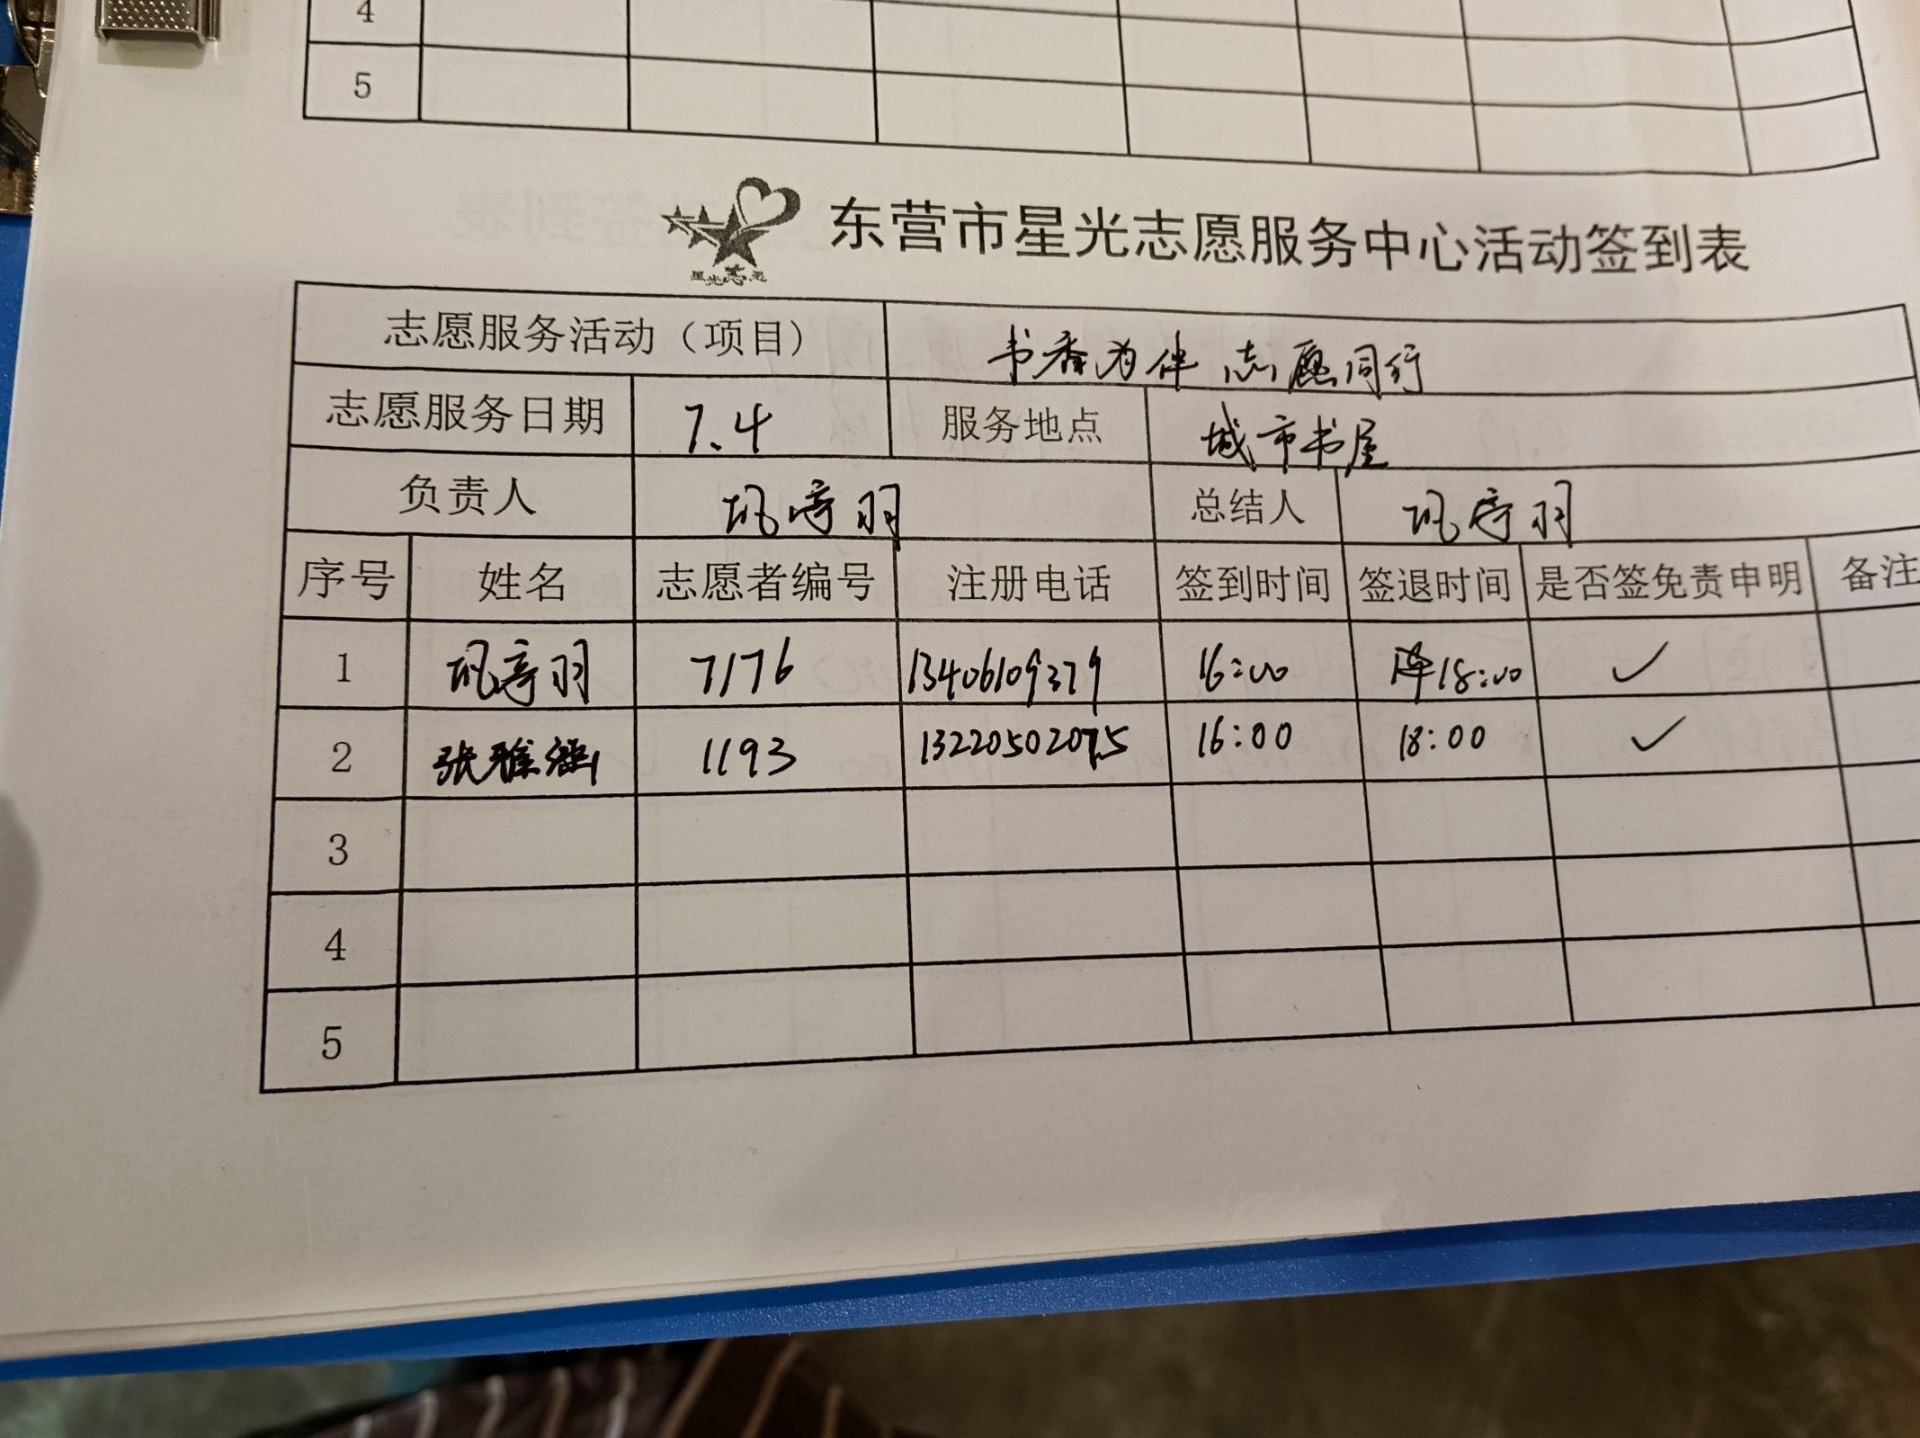 4
5
星光志愿
东营市星光志愿服务中心活动签到表
志愿服务活动（项目） 书香为伴 志愿同行
志愿服务日期 7.4 服务地点 城市书屋
负责人 羽 总结人 羽
序号 姓名 志愿者编号 注册电话 签到时间 签退时间 是否签免责申明 备注
1 羽 7176 13406109379 16:00 18:00 ✓
2 张雅涵 1193 13220502075 16:00 18:00 ✓
3
4
5